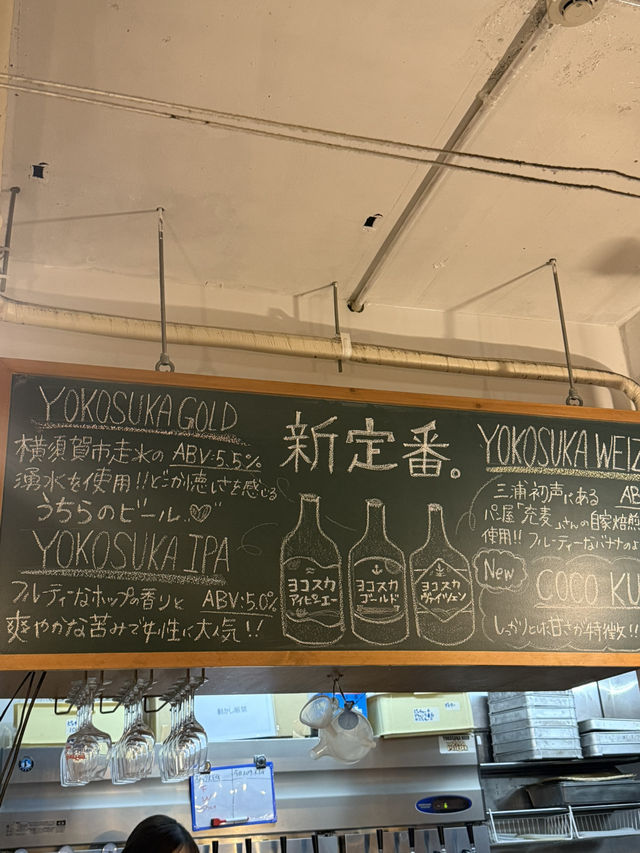 YOKOSUKA GOLD
横須賀市走水の ABV:5.5%
湧水を使用!!どこか懐しさを感じる
うちらのビール
YOKOSUKA IPA
フルーティーなホップの香りと ABV:5.0%
爽やかな苦みで女性に大人気!!
新定番。
ヨコスカ
アイピーエー
ヨコスカ
ゴールド
ヨコスカ
ヴァイツェン
YOKOSUKA WEIZ
三浦初声にある AB
パン屋「充麦」さんの自家焙煎
使用!!フルーティーなバナナのよ
New
COCO KU
しっかりとした甘さが特徴!!